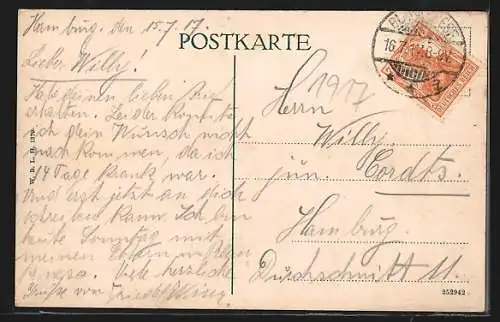 Hamburg, den 15.7.17.
POSTKARTE
Lieber Willy!
Habe deinen lieben Brief
erhalten. Leider konnte
ich dein Wunsch nicht
nach kommen, da ich
14 Tage Krank war.
Und erst jetzt an dich
schreiben kann. Ich bin
heute Sonntag mit
meinen Eltern in
Viele herzliche
Grüße von
1917
Herrn
Willy
jun. Cordts.
Hamburg.
11.
W. B. L. H.
252942
16.7.17